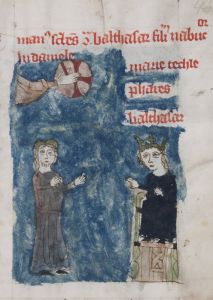 or
man⁹ sc̄ds ʒ̄ balthasar filĩ nabuc
In daniele
mane techle
phares
balthasar